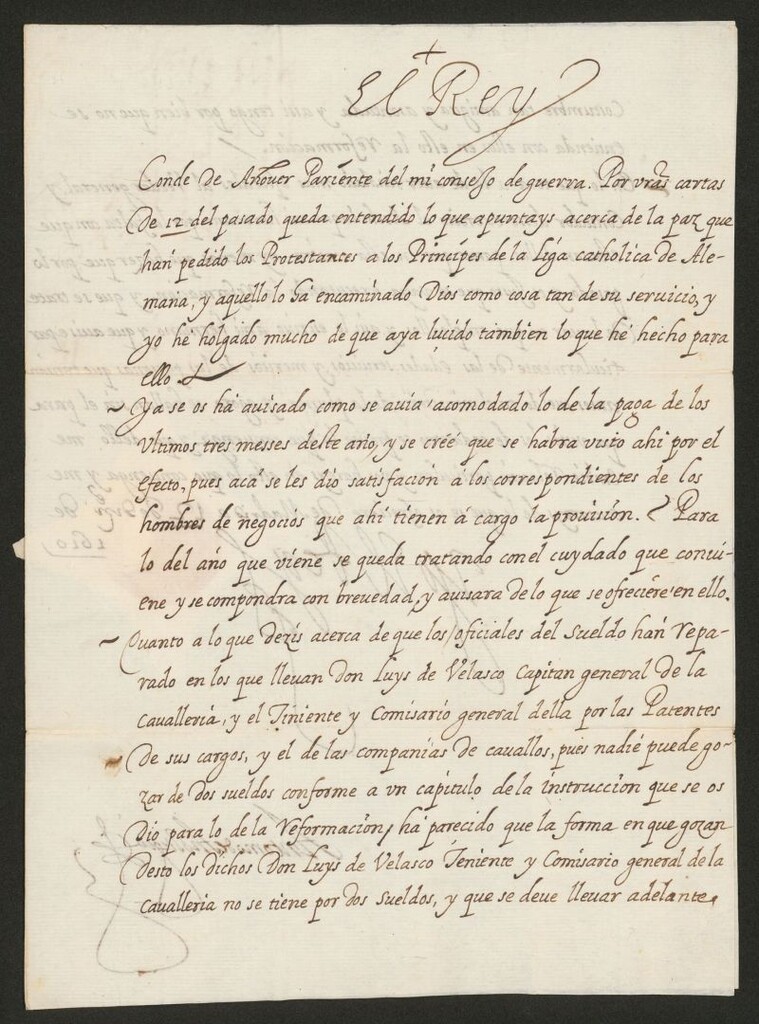 +
El Rey
Conde de Añover Pariente del mi consejo de guerra. Por vras cartas
de 12 del pasado queda entendido lo que apuntays acerca de la paz que
han pedido los Protestantes a los Principes de la liga catholica de Ale-
mana, y aquello lo há encaminado Dios como cosa tan de su seruicio, y
yo hé holgado mucho de que aya lucido tambien lo que hé hecho para
ello.
~ Ya se os há auisado como se auia acomodado lo de la paga de los
vltimos tres messes deste año, y se créé que se habra visto ahi por el
efecto, pues acá se les dio satisfacion á los correspondientes de los
hombres de negocios que ahi tienen á cargo la prouision. Para
lo del año que viene se queda tratando con el cuydado que conui-
ene y se compondra con breuedad, y auisara de lo que se ofreciere en ello.
~ Quanto a lo que dezis acerca de que los oficiales del sueldo han repa-
rado en los que lleuan Don Luys de Velasco Capitan general de la
caualleria, y el Teniente y Comisario general della por las Patentes
de sus cargos, y el de las companias de cauallos, pues nadie puede go-
zar de dos sueldos conforme a vn capitulo de la instruccion que se os
dio para lo de la reformacion, há parecido que la forma en que gozan
desto los dichos Don Luys de Velasco Teniente y Comisario general de la
caualleria no se tiene por dos sueldos, y que se deue lleuar adelante,